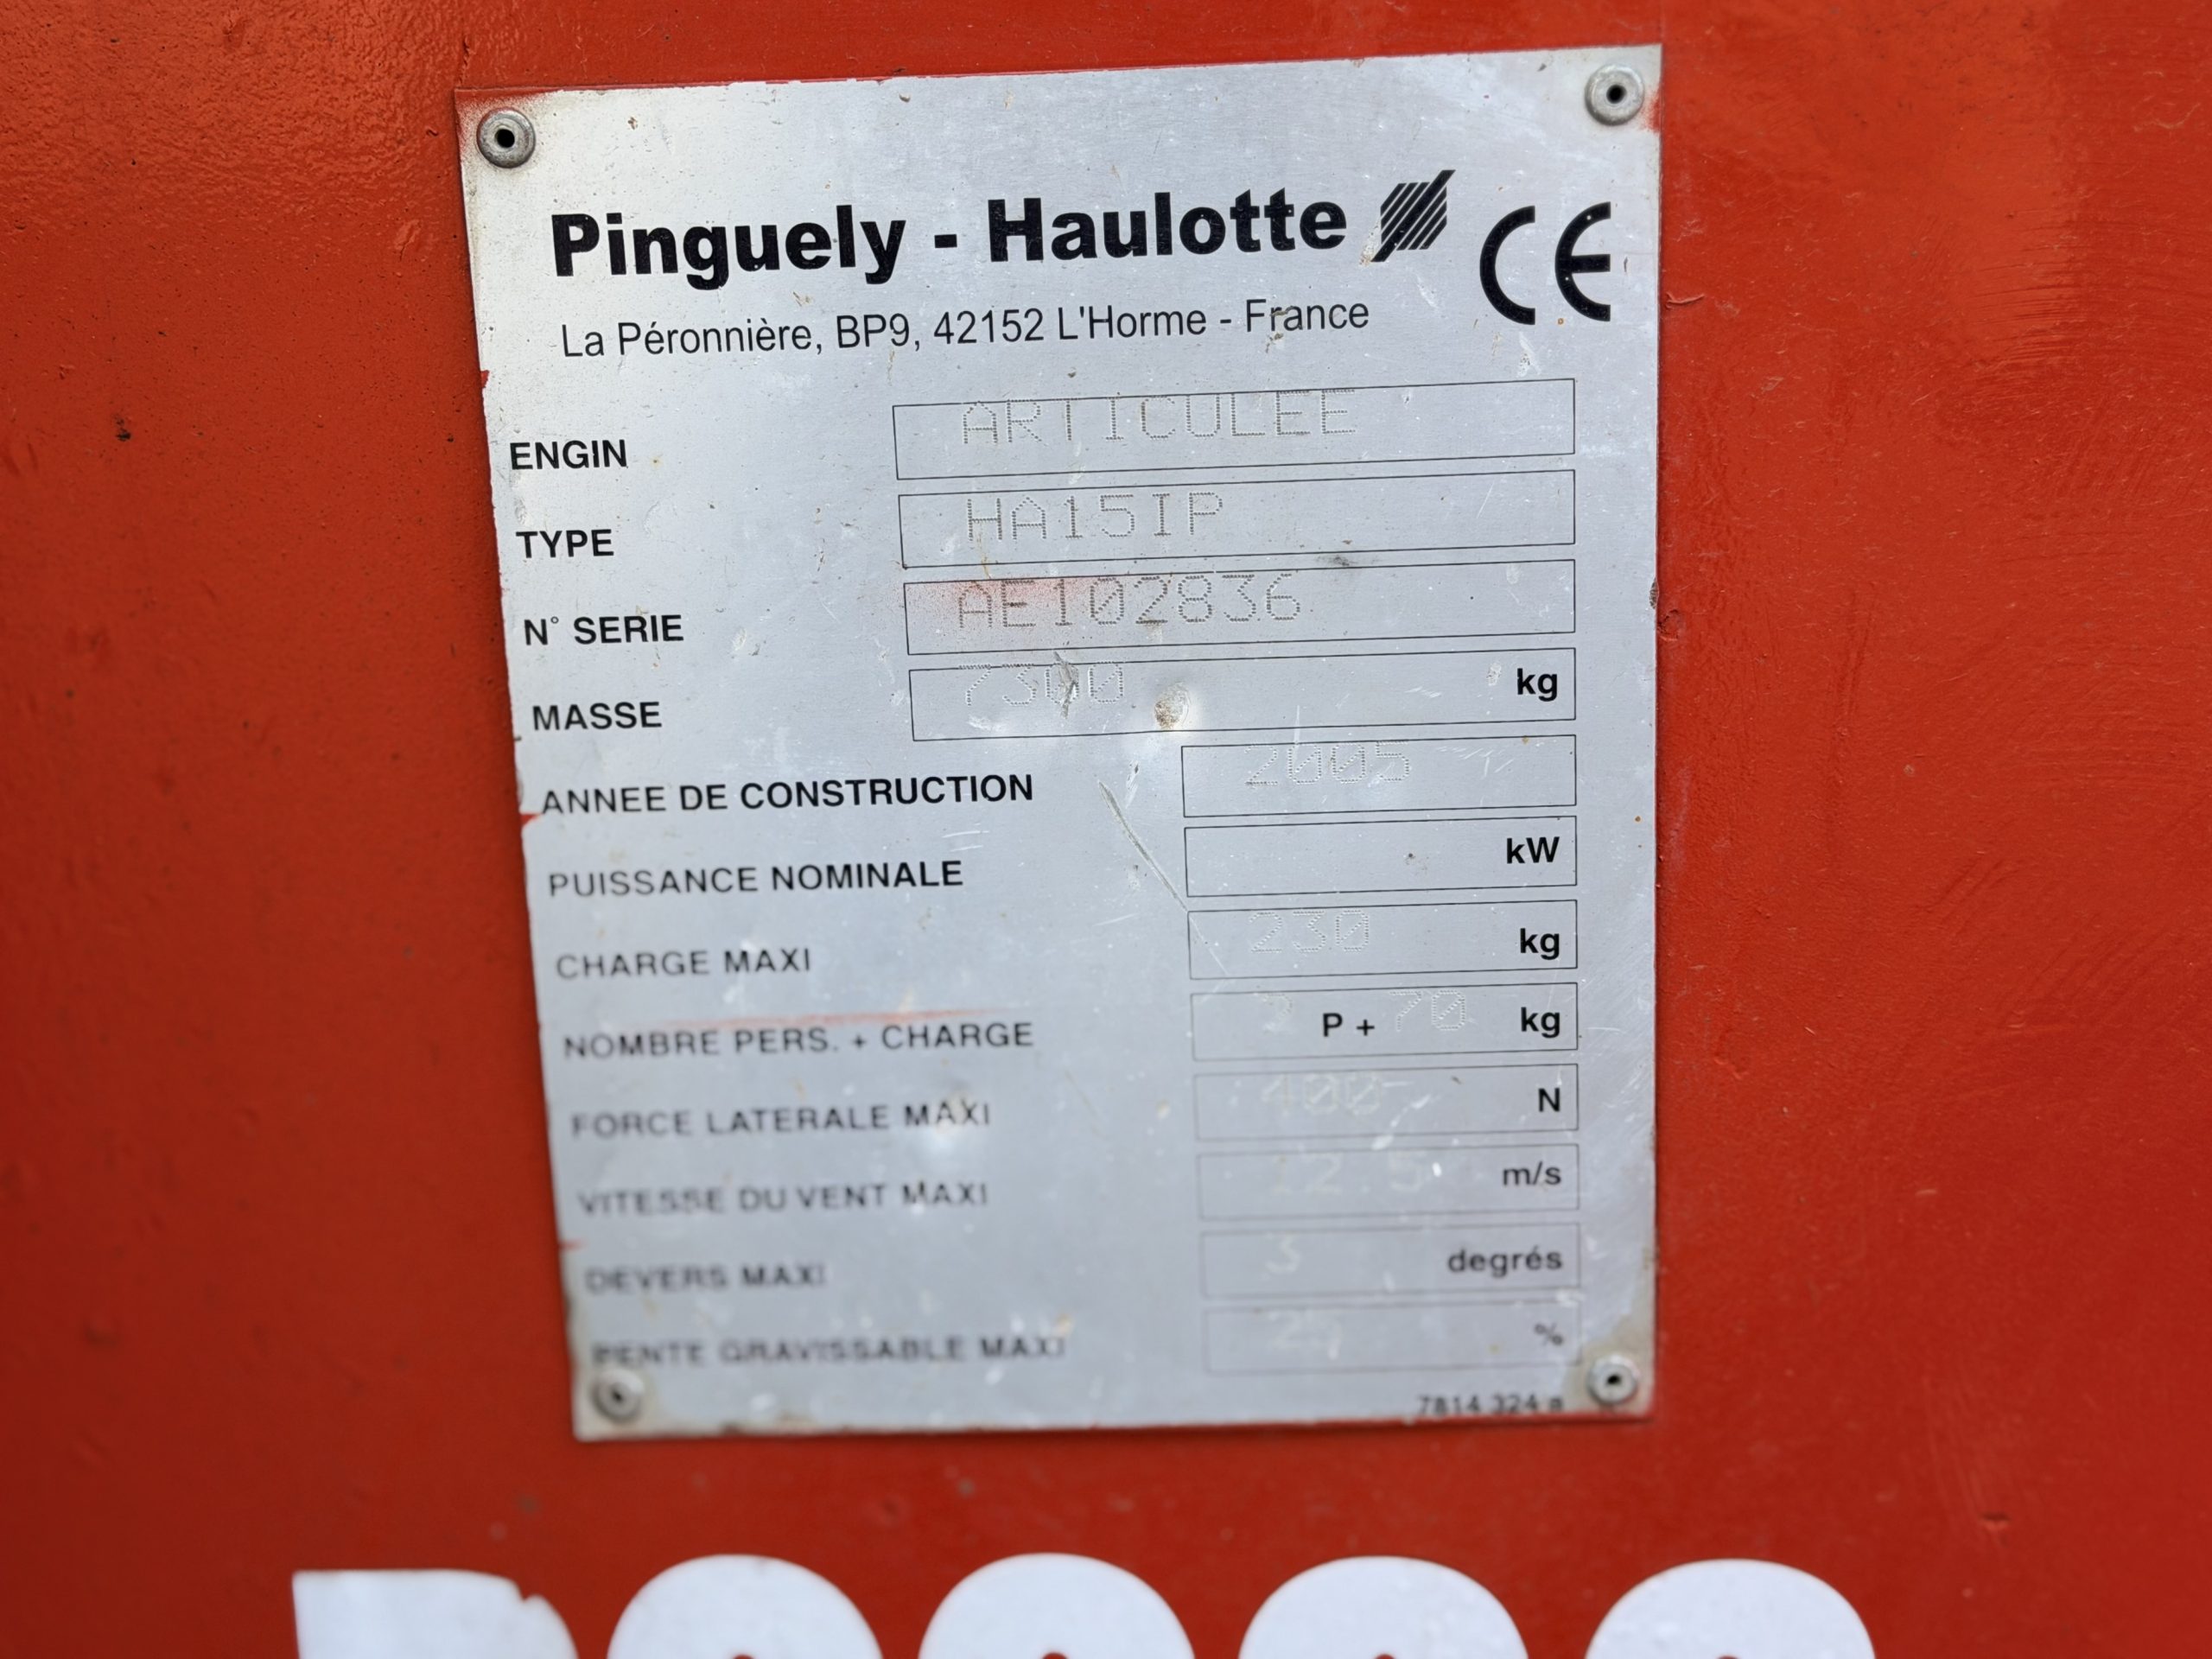 Pinguely - Haulotte CE
La Péronnière, BP9, 42152 L'Horme - France
ENGIN ARTICULEE
TYPE HA15IP
N° SERIE AE102836
MASSE 7300 kg
ANNEE DE CONSTRUCTION 2005
PUISSANCE NOMINALE kW
CHARGE MAXI 230 kg
NOMBRE PERS. + CHARGE P + 70 kg
FORCE LATERALE MAXI 400 N
VITESSE DU VENT MAXI 12.5 m/s
DEVERS MAXI 3 degrés
PENTE GRAVISSABLE MAXI %
7814 324